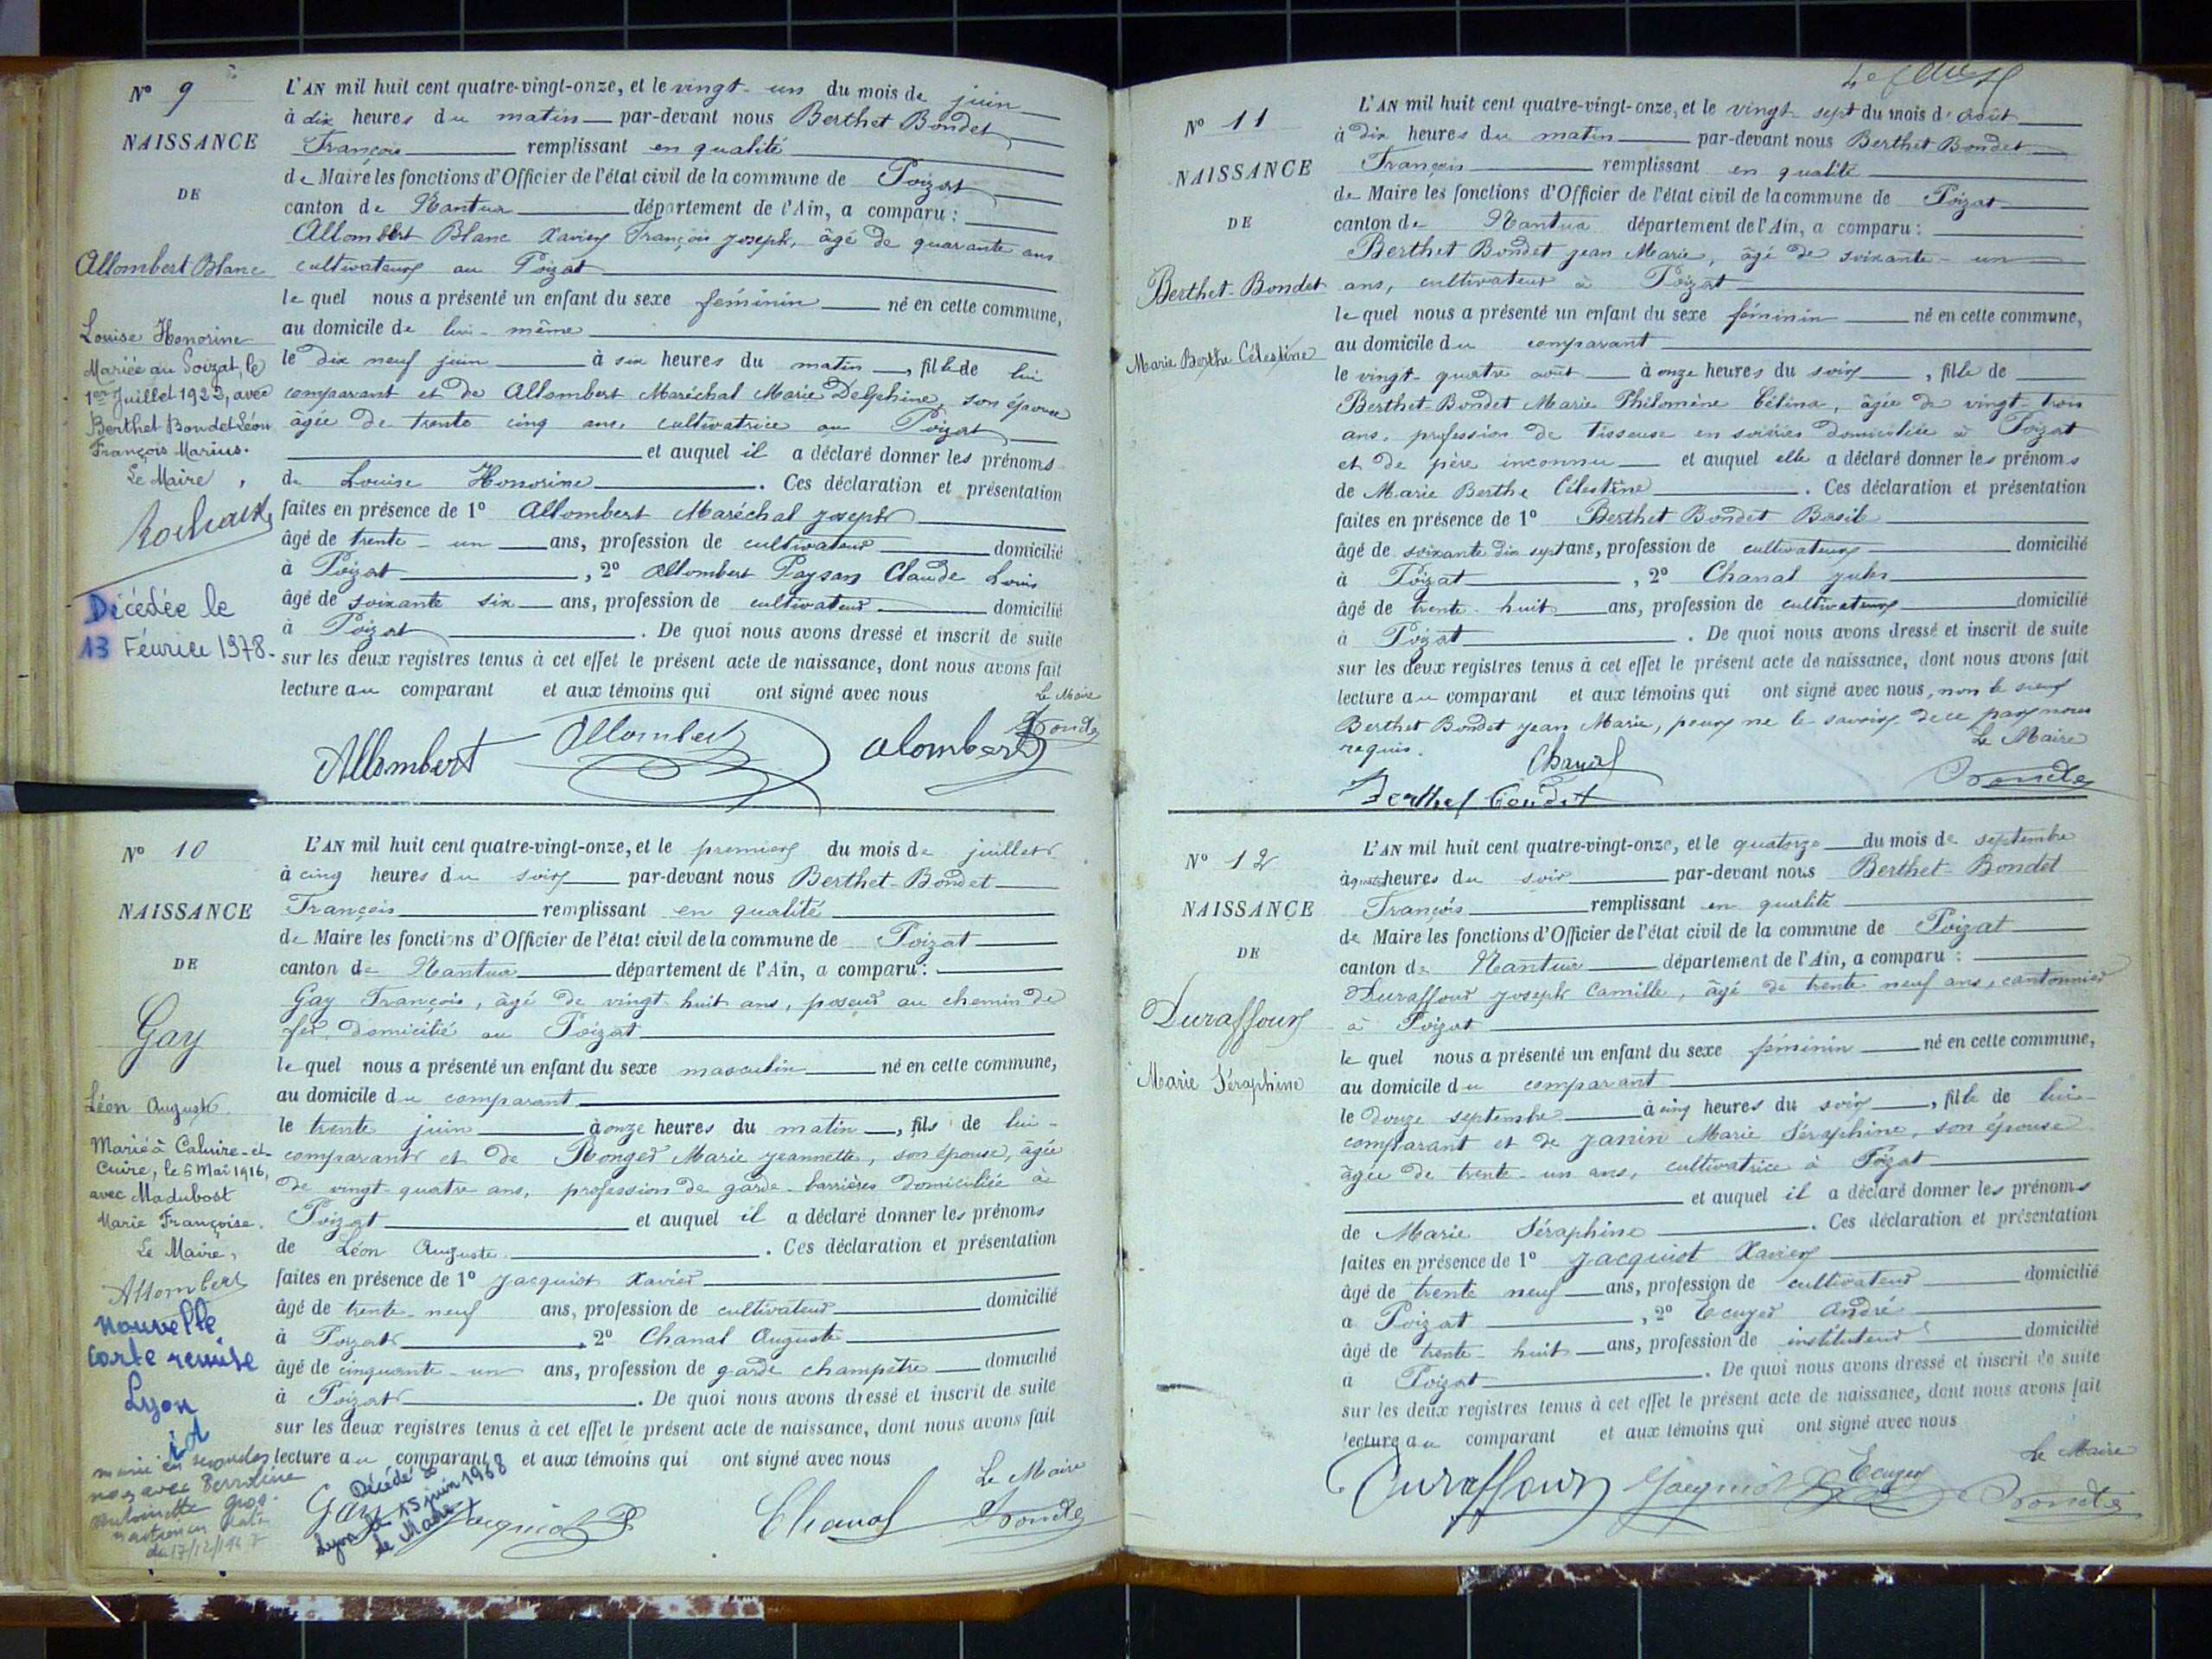 N° 9
NAISSANCE
DE
Allombert Blanc
Louise Honorine
Mariée au Poizat, le
1er Juillet 1922, avec
Berthet Bondet Léon
François Marius.
Le Maire,
Décédée le
13 Février 1978.
L'AN mil huit cent quatre-vingt-onze, et le vingt-un du mois de juin
à dix heures du matin par-devant nous Berthet Bondet
François remplissant en qualité
de Maire les fonctions d'Officier de l'état civil de la commune de Poizat
canton de Nantua département de l'Ain, a comparu :
Allombert Blanc Xavier François Joseph, âgé de quarante ans
cultivateur au Poizat
le quel nous a présenté un enfant du sexe féminin né en cette commune,
au domicile de lui-même
le dix neuf juin à six heures du matin, fille de lui
comparant et de Allombert Maréchal Marie Delphine, son épouse
âgée de trente cinq ans, cultivatrice au Poizat
et auquel il a déclaré donner les prénoms
de Louise Honorine. Ces déclaration et présentation
faites en présence de 1° Allombert Maréchal Joseph
âgé de trente-un ans, profession de cultivateur domicilié
à Poizat, 2° Allombert Paysan Claude Louis
âgé de soixante six ans, profession de cultivateur domicilié
à Poizat. De quoi nous avons dressé et inscrit de suite
sur les deux registres tenus à cet effet le présent acte de naissance, dont nous avons fait
lecture au comparant et aux témoins qui ont signé avec nous
Le Maire
Allombert Allombert alombert Bondet
N° 10
NAISSANCE
DE
Gay
Léon Auguste.
Marié à Caluire-et-
Cuire, le 6 Mai 1916,
avec Madubost
Marie Françoise.
Le Maire,
Allombert
nouvelle
carte remise
Lyon
marié en secondes
noces avec Perroline
Antoinette Gros.
du 17/12/194
L'AN mil huit cent quatre-vingt-onze, et le premier du mois de juillet
à cinq heures du soir par-devant nous Berthet-Bondet
François remplissant en qualité
de Maire les fonctions d'Officier de l'état civil de la commune de Poizat
canton de Nantua département de l'Ain, a comparu :
Gay François, âgé de vingt-huit ans, poseur au chemin de
fer domicilié au Poizat
le quel nous a présenté un enfant du sexe masculin né en cette commune,
au domicile du comparant
le trente juin à onze heures du matin, fils de lui-
comparant et de Ronger Marie Jeannette, son épouse, âgée
de vingt-quatre ans, profession de garde-barrières domiciliée à
Poizat et auquel il a déclaré donner les prénoms
de Léon Auguste. Ces déclaration et présentation
faites en présence de 1° Jacquiot Xavier
âgé de trente-neuf ans, profession de cultivateur domicilié
à Poizat, 2° Chanal Auguste
âgé de cinquante-un ans, profession de garde champêtre domicilié
à Poizat. De quoi nous avons dressé et inscrit de suite
sur les deux registres tenus à cet effet le présent acte de naissance, dont nous avons fait
lecture au comparant et aux témoins qui ont signé avec nous
Décédé à
Lyon le 15 juin 1968
Le Maire
Le Maire
Gay Jacquiot Chanal Bondet
N° 11
NAISSANCE
DE
Berthet-Bondet
Marie Berthe Célestine
L'AN mil huit cent quatre-vingt-onze, et le vingt-sept du mois d'août
à dix heures du matin par-devant nous Berthet Bondet
François remplissant en qualité
de Maire les fonctions d'Officier de l'état civil de la commune de Poizat
canton de Nantua département de l'Ain, a comparu :
Berthet Bondet Jean Marie, âgé de soixante-un
ans, cultivateur à Poizat
le quel nous a présenté un enfant du sexe féminin né en cette commune,
au domicile du comparant
le vingt-quatre août à onze heures du soir, fille de
Berthet-Bondet Marie Philomène Célina, âgée de vingt-trois
ans, profession de tisseuse en soieries domiciliée à Poizat
et de père inconnu et auquel elle a déclaré donner les prénoms
de Marie Berthe Célestine. Ces déclaration et présentation
faites en présence de 1° Berthet Bondet Basile
âgé de soixante dix sept ans, profession de cultivateur domicilié
à Poizat, 2° Chanal Jules
âgé de trente-huit ans, profession de cultivateur domicilié
à Poizat. De quoi nous avons dressé et inscrit de suite
sur les deux registres tenus à cet effet le présent acte de naissance, dont nous avons fait
lecture au comparant et aux témoins qui ont signé avec nous, non le sieur
Berthet Bondet Jean Marie, pour ne le savoir de ce par nous
requis.
Le Maire
Chanal
Berthet Bondet Bondet
N° 12
NAISSANCE
DE
Duraffour
Marie Séraphine
L'AN mil huit cent quatre-vingt-onze, et le quatorze du mois de septembre
à quatre heures du soir par-devant nous Berthet-Bondet
François remplissant en qualité
de Maire les fonctions d'Officier de l'état civil de la commune de Poizat
canton de Nantua département de l'Ain, a comparu :
Duraffour Joseph Camille, âgé de trente neuf ans, cantonnier
à Poizat
le quel nous a présenté un enfant du sexe féminin né en cette commune,
au domicile du comparant
le douze septembre à cinq heures du soir, fille de lui-
comparant et de Janin Marie Séraphine, son épouse
âgée de trente-un ans, cultivatrice à Poizat
et auquel il a déclaré donner les prénoms
de Marie Séraphine. Ces déclaration et présentation
faites en présence de 1° Jacquiot Xavier
âgé de trente neuf ans, profession de cultivateur domicilié
à Poizat, 2° Ecuyer André
âgé de trente-huit ans, profession de instituteur domicilié
à Poizat. De quoi nous avons dressé et inscrit de suite
sur les deux registres tenus à cet effet le présent acte de naissance, dont nous avons fait
lecture au comparant et aux témoins qui ont signé avec nous
Le Maire
Duraffour Jacquiot Ecuyer Bondet